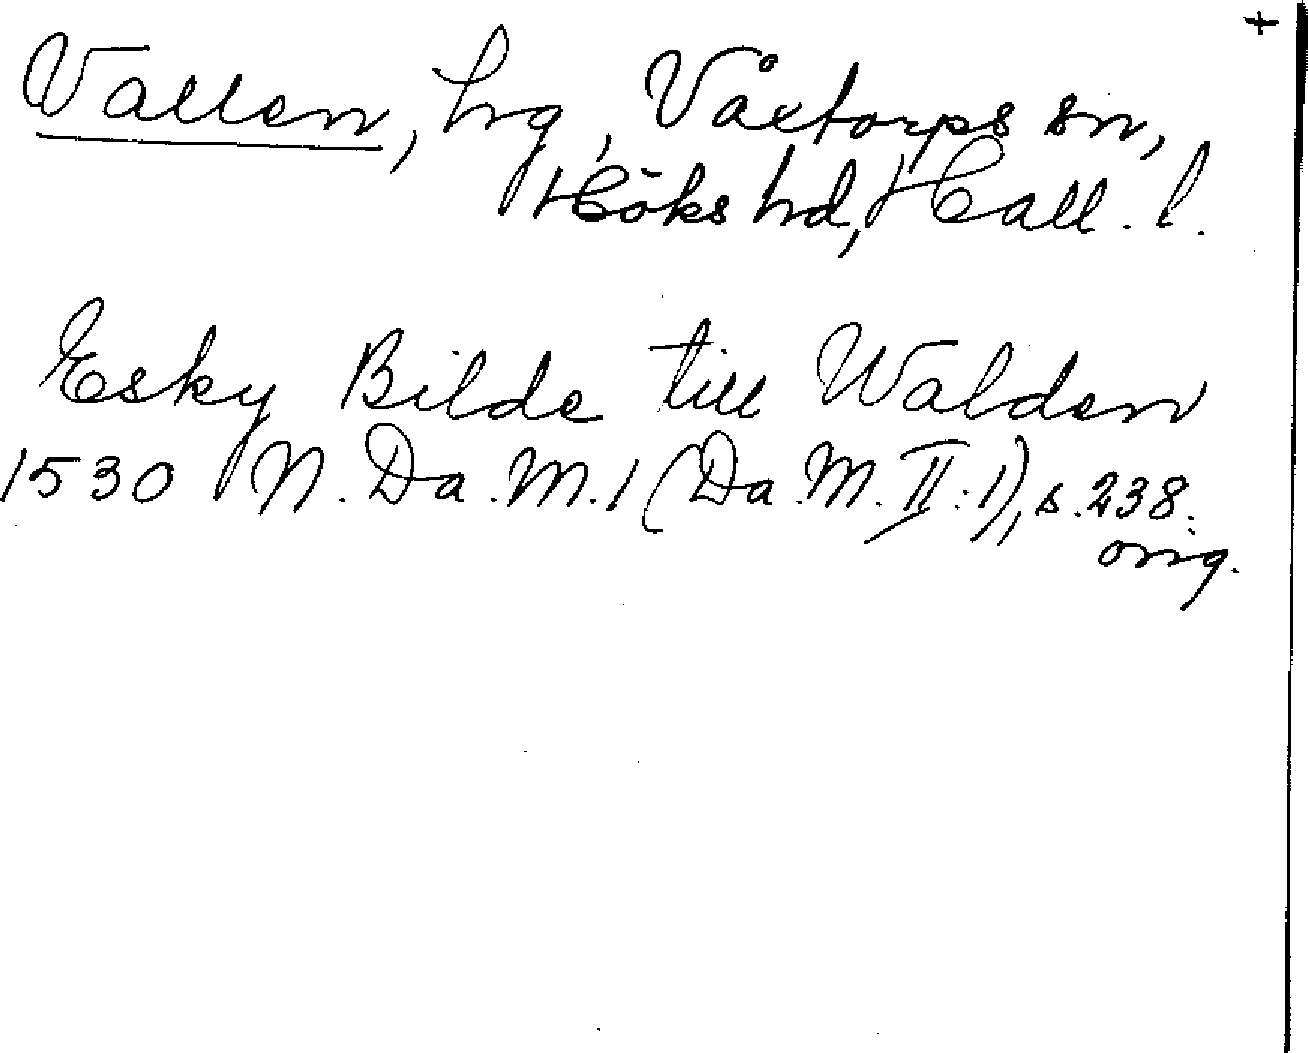 +
Vallen, hg, Våxtorps sn,
Höks hd, Hall. l.
Esky Bilde till Walden
1530 N. Da. M. 1 (Da. M. II:1), s. 238.
orig.